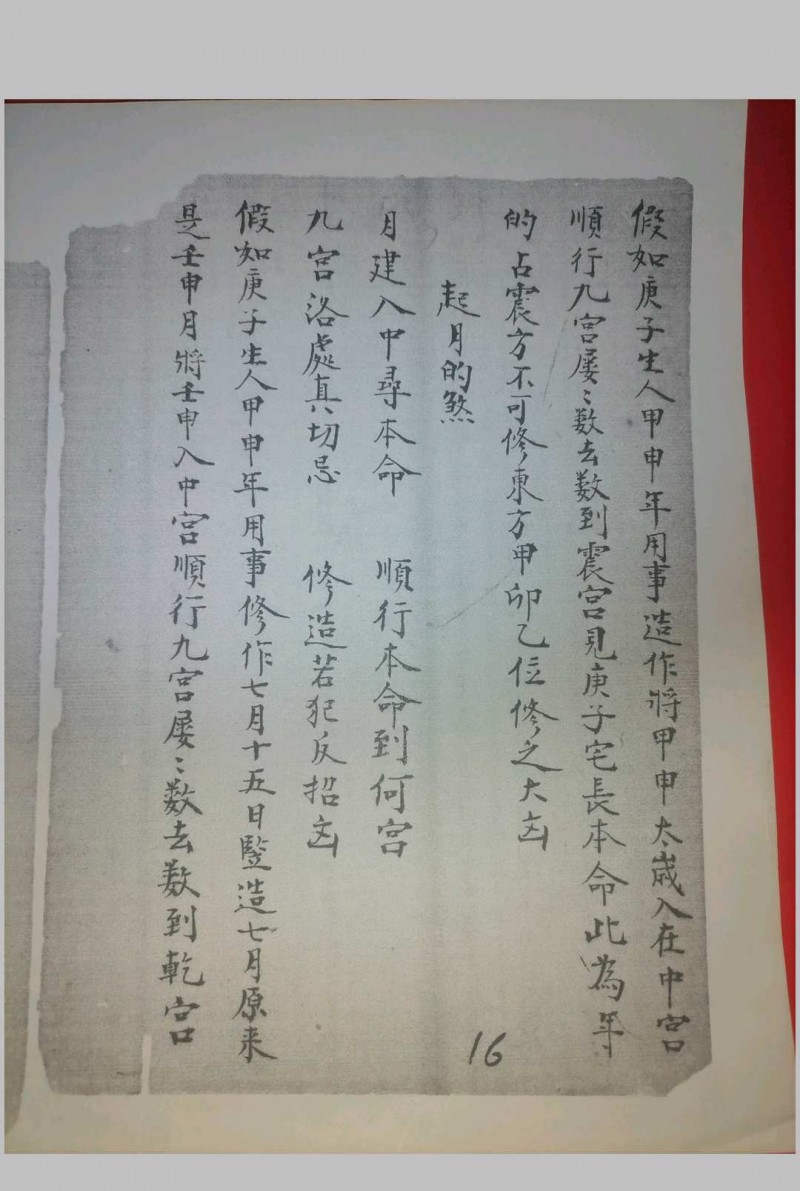 假如庚子生人甲申年用事造作將甲申太歲入在中宮
順行九宮屡〻数去数到震宮見庚子宅長本命此為年
的占震方不可修東方甲卯乙位修之大凶
起月的煞
月建入中尋本命　順行本命到何宮
九宮洛處真切忌　修造若犯反招凶
假如庚子生人甲申年用事修作七月十五日竪造七月原来
是壬申月將壬申入中宮順行九宮屡〻数去数到乾宮
16